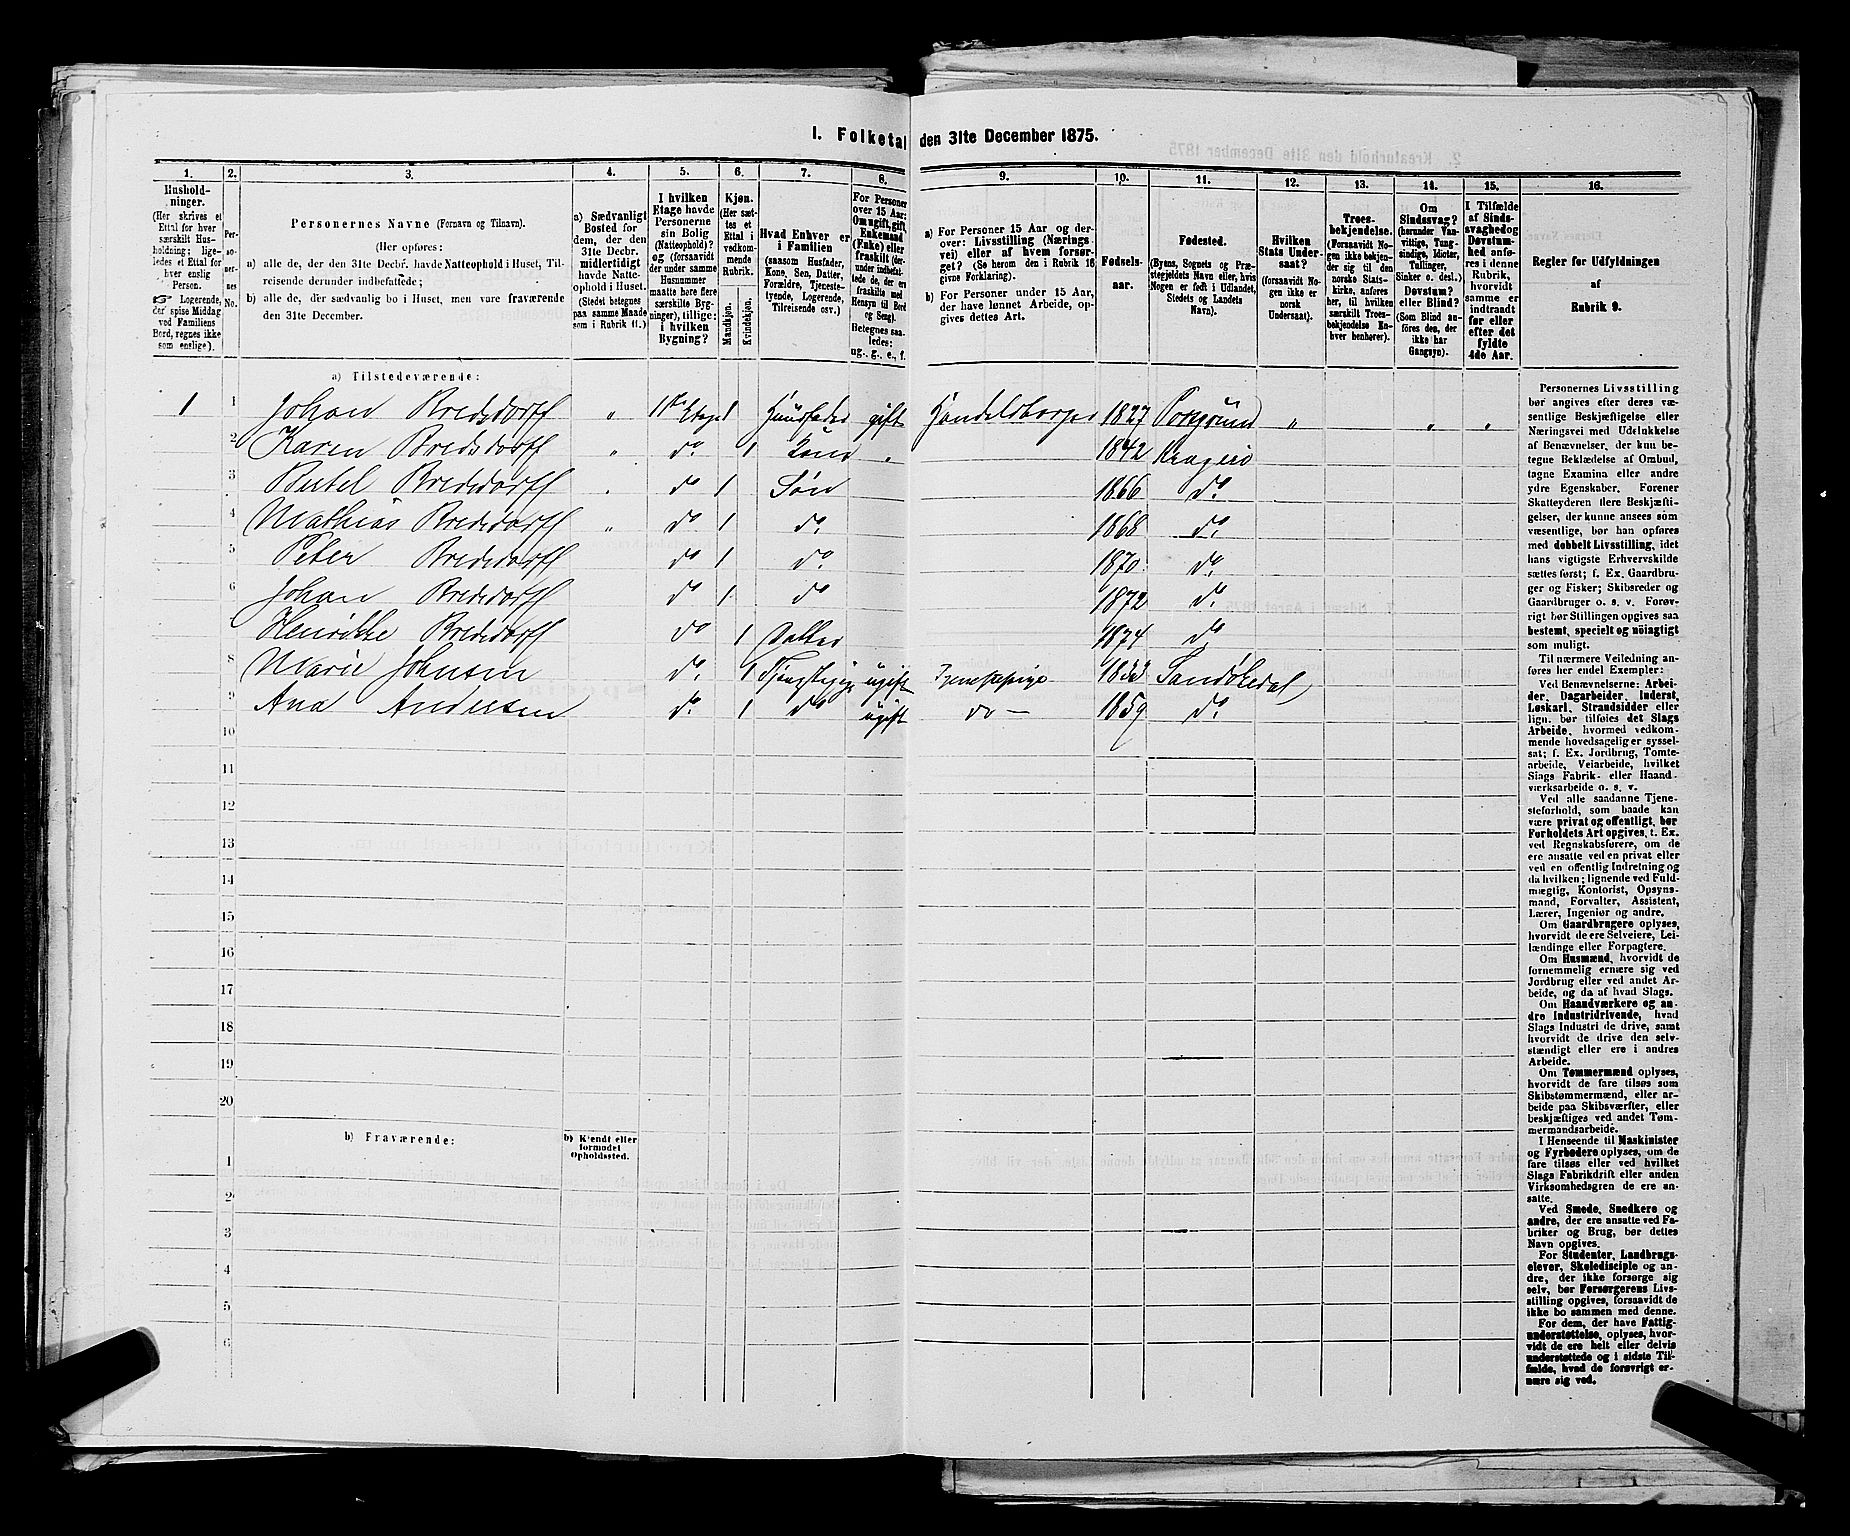 I. Folketal den 31te December 1875.
1. 2. 3. 4. 5. 6. 7. 8. 9. 10. 11. 12. 13. 14. 15. 16.
Hushold-
ninger.
(Her skrives et
Ettal for hver
særskilt Hus-
holdning; lige-
ledes et Ettal for
hver enslig
Person.
☞ Logerende,
der spise Middag
ved Familiens
Bord, regnes ikke
som enslige).
Per-
so-
ner-
nes
No.
Personernes Navne (Fornavn og Tilnavn).
(Her opføres:
a) alle de, der den 31te Decbr. havde Natteophold i Huset, Til-
reisende derunder indbefattede;
b) alle de, der sædvanlig bo i Huset, men vare fraværende
den 31te December.
a) Sædvanligt
Bosted for
dem, der den
31te Decbr.
midlertidigt
havde Natte-
ophold i Huset.
(Stedet betegnes
paa samme Maade
som i Rubrik 11.)
I hvilken
Etage havde
Personerne
sin Bolig
(Natteophold)?
og (forsaavidt
der under samme
Husnummer
maatte høre flere
særskilte Byg-
ninger), tillige:
i hvilken
Bygning?
Kjøn.
(Her sæt-
tes et
Ettal i
vedkom-
mende
Rubrik.
Mandkjøn. Kvindekjøn.
Hvad Enhver er
i Familien
(saasom Husfader,
Kone, Søn, Datter,
Forældre, Tjeneste-
tyende, Logerende,
Tilreisende osv.)
For Personer
over 15 Aar:
Om ugift, gift,
Enkemand
(Enke) eller
fraskilt (der-
under indbefat-
tede de, der ere
fraskilte med
Hensyn til Bord
og Seng).
Betegnes saa-
ledes:
ug., g., e., f.
a) For Personer 15 Aar og der-
over: Livsstilling (Nærings-
vei) eller af hvem forsør-
get? (Se herom den i Rubrik 16
givne Forklaring).
b) For Personer under 15 Aar,
der have lønnet Arbeide, op-
gives dettes Art.
Fødsels-
aar.
Fødested.
(Byens, Sognets og Præ-
stegjeldets Navn eller, hvis
Nogen er født i Udlandet,
Stedets og Landets
Navn).
Hvilken
Stats Under-
saat?
(forsaavidt No-
gen ikke er
norsk
Undersaat).
Troes-
bekjendelse.
(Forsaavidt No-
gen ikke bekjen-
der sig til den
norske Stats-
kirke, anføres
her, til hvilken
særskilt Troes-
bekjendelse En-
hver henhører).
Om
Sindssvag?
(herunder Van-
vittige, Tung-
sindige, Idioter,
Tullinger,
Sinker o. desl.)
Døvstum?
eller Blind?
(Som Blind an-
føres den, der
ikke har
Gangsyn).
I Tilfælde
af Sinds-
svaghed og
Døvstum-
hed anfø-
res i denne
Rubrik,
hvorvidt
samme er
indtraadt
før eller
efter det
fyldte
4de Aar.
Regler for Udfyldningen
af
Rubrik 9.
a) Tilstedeværende:
1 1 Johan Bredsdorff " 1ste Etage 1 Huusfader gift Handelsborger 1827 Porsgrund " " "
2 Karen Bredsdorff " do 1 Kone " 1842 Kragerø
3 Bertel Bredsdorff " do 1 Søn 1866 do
4 Mathias Bredsdorff " do 1 do 1868 do
5 Peter Bredsdorff do 1 do 1870 do
6 Johan Bredsdorff do 1 do 1872 do
Henrikke Bredsdorff do 1 Datter 1874 do
8 Marie Johnsen do 1 ugift Tjenestepige 1853 Sandøkedal
9 Ana Andersen do 1 do ugift do — 1859 do
10
11
12
13
14
15
16
17
18
19
20
b) Fraværende:
b) Kjendt eller
formodet
Opholdssted.
1
2
3
4
5
6
Personernes Livsstilling
bør angives efter deres væ-
sentlige Beskjæftigelse eller
Næringsvei med Udelukkelse
af Benævnelser, der kun be-
tegne Beklædelse af Ombud,
tagne Examina eller andre
ydre Egenskaber. Forener
Skatteyderen flere Beskjæfti-
gelser, der kunne ansees som
væsentlige, bør han opføres
med dobbelt Livsstilling, idet
hans vigtigste Erhvervskilde
sættes først; f. Ex. Gaardbru-
ger og Fisker; Skibsreder og
Gaardbruger o. s. v. Forøv-
rigt bør Stillingen opgives saa
bestemt, specielt og nøiagtigt
som muligt.
Til nærmere Veiledning an-
føres her endel Exempler:
Ved Benævnelserne: Arbei-
der, Dagarbeider, Inderst,
Løskarl, Strandsidder eller
lign. bør tilføies det Slags
Arbeide, hvormed vedkom-
mende hovedsagelig er syssel-
sat; f. Ex. Jordbrug, Tomte-
arbeide, Veiarbeide, hvilket
Slags Fabrik- eller Haand-
værksarbeide o. s. v.
Ved alle saadanne Tjene-
steforhold, som baade kan
være privat og offentligt, bør
Forholdets Art opgives, t. Ex.
ved Regnskabsførere, om de
ere ansatte ved en privat eller
ved en offentlig Indretning og
da hvilken; lignende ved Fuld-
mægtig, Kontorist, Opsyns-
mand, Forvalter, Assistent,
Lærer, Ingeniør og andre.
Om Gaardbrugere oplyses,
hvorvidt de ere Selveiere, Lei-
lændinge eller Forpagtere.
Om Husmænd, hvorvidt de
fornemmelig ernære sig ved
Jordbrug eller ved andet Ar-
beide, og da af hvad Slags.
Om Haandværkere og an-
dre Industridrivende, hvad
Slags Industri de drive, samt
hvorvidt de drive den selv-
stændigt eller ere i andres
Arbeide.
Om Tømmermænd oplyses,
hvorvidt de fare tilsøs som
Skibstømmermænd, eller ar-
beide paa Skibsværfter, eller
beskjæftiges ved andet Tøm-
mermandsarbeide.
I Henseende til Maskinister
og Fyrbødere oplyses, om de
fare tilsøs eller ved hvilket
Slags Fabrikdrift eller anden
Virksomhedsgren de ere an-
satte.
Ved Smede, Snedkere og
andre, der ere ansatte ved Fa-
briker og Brug, bør dettes
Navn opgives.
For Studenter, Landbrugs-
elever, Skoledisciple og an-
dre, der ikke forsørge sig
selv, bør Forsørgerens Livs-
stilling opgives, forsaavidt de
ikke bo sammen med denne.
For dem, der have Fattig-
understøttelse, oplyses, hvor-
vidt de ere helt eller delvis
understøttede og i sidste Til-
fælde, hvad de forøvrigt er-
nære sig ved.